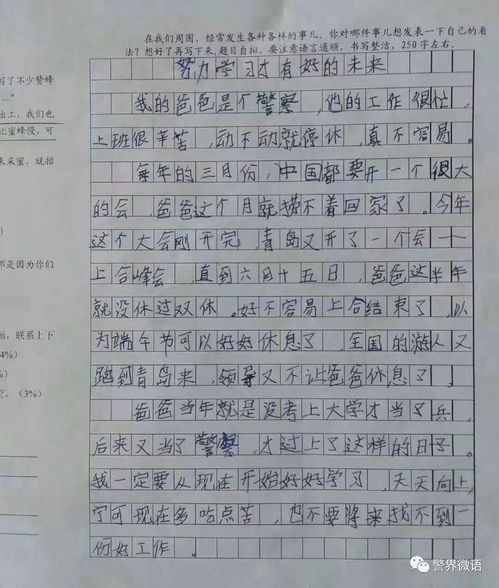 在我们周围，经常发生各种各样的事儿。你对哪件事儿想发表一下自己的看
法？想好了再写下来,题目自拟。要注意语言通顺，书写整洁，250字左右。
努力学习才有好的未来
我的爸爸是个警察，他的工作很忙，
上班很辛苦，动不动就停休，真不容易。
每年的三月份，中国都要开一个很大
的会，爸爸这个月就捞不着回家了。今年
这个大会刚开完，青岛又开了一个会——
上合峰会，直到六月十五日，爸爸这半年
就没休过双休。好不容易上合结束了，以
为端午节可以好好休息了，全国的游人又
跑到青岛来，领导又不让爸爸休息了。
爸爸当年就是没考上大学才当了兵，
后来又当了警察，才过上了这样的日子。
我一定要从现在开始好好学习，天天向上，
宁可现在多吃点苦，也不要将来找不到一
份好工作。
写了不少赞蜂
…"
出工，我们也
比蜜蜂慢，可
来采蜜，就抬
那是因为你们
画，联系上下
4%）
%）
（3%）
警界微语